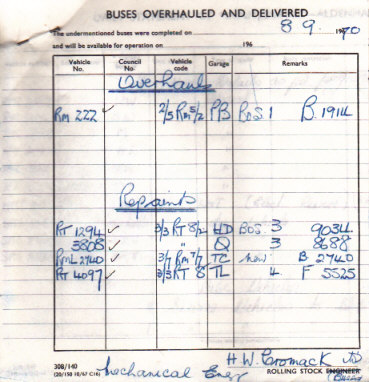 BUSES OVERHAULED AND DELIVERED
The undermentioned buses were completed on 8 9 1970
and will be available for operation on 196
Vehicle No. Council No. Vehicle code Garage Remarks
Overhauls
RM 222 ✓ 2/3 RM 5/2 PB BOS. 1 B. 1914
Repaints
RT 1294 ✓ 3/3 RT 8/2 HD BOS 3 9034
3808 ✓ " Q 3 8688
RML 2740 ✓ 3/7 RM 7/7 TC New B 2740
RT 4097 ✓ 3/3 RT 8 TL 4 F 5525
H.W. Cromack
308/140 ROLLING STOCK ENGINEER
(20/150 10/67 C16) Mechanical Engr